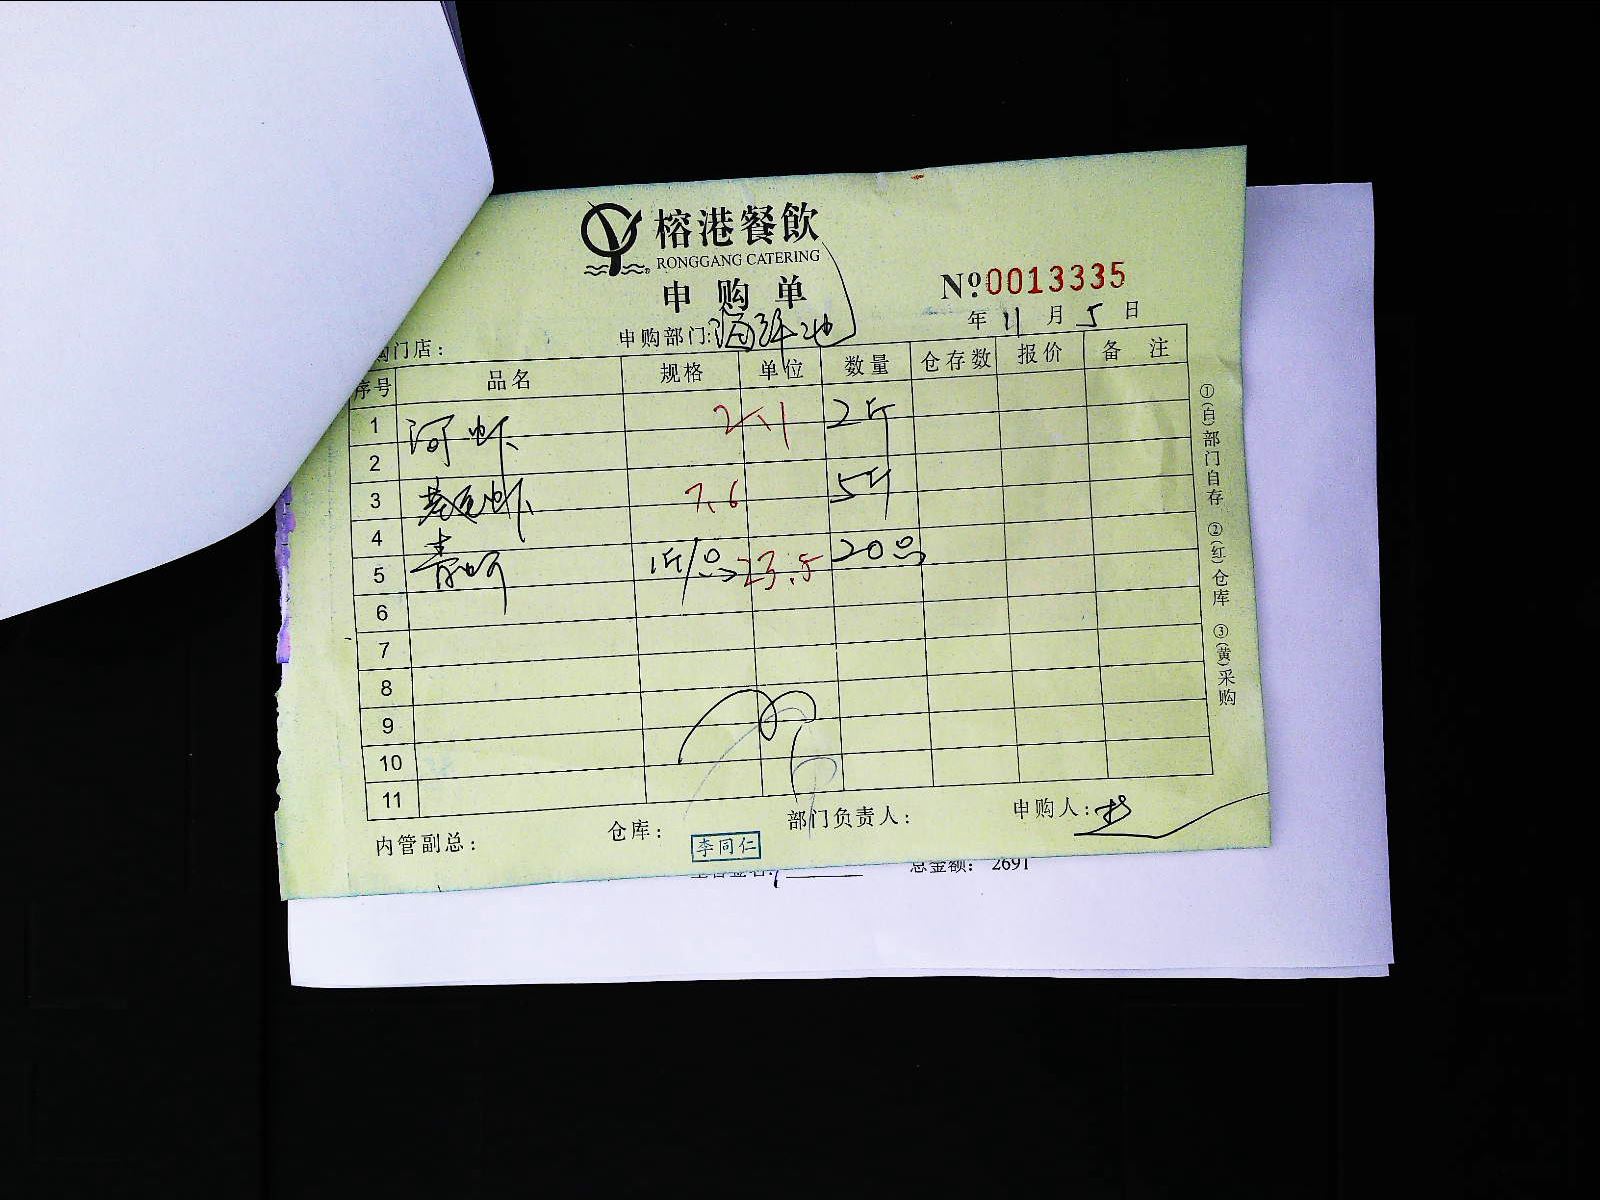 榕港餐飲
RONGGANG CATERING
申购单
Nº0013335
年 11 月 5 日
门店： 申购部门：海鲜池
序号 品名 规格 单位 数量 仓存数 报价 备注
1 河虾 2.1 2斤
2
3 虾 7.6 5斤
4
5 青 1斤/只 23.5 20只
6
7
8
9
10
11
内管副总： 仓库： 李同仁 部门负责人： 申购人：
①(白)部门自存 ②(红)仓库 ③(黄)采购
总金额： 2691